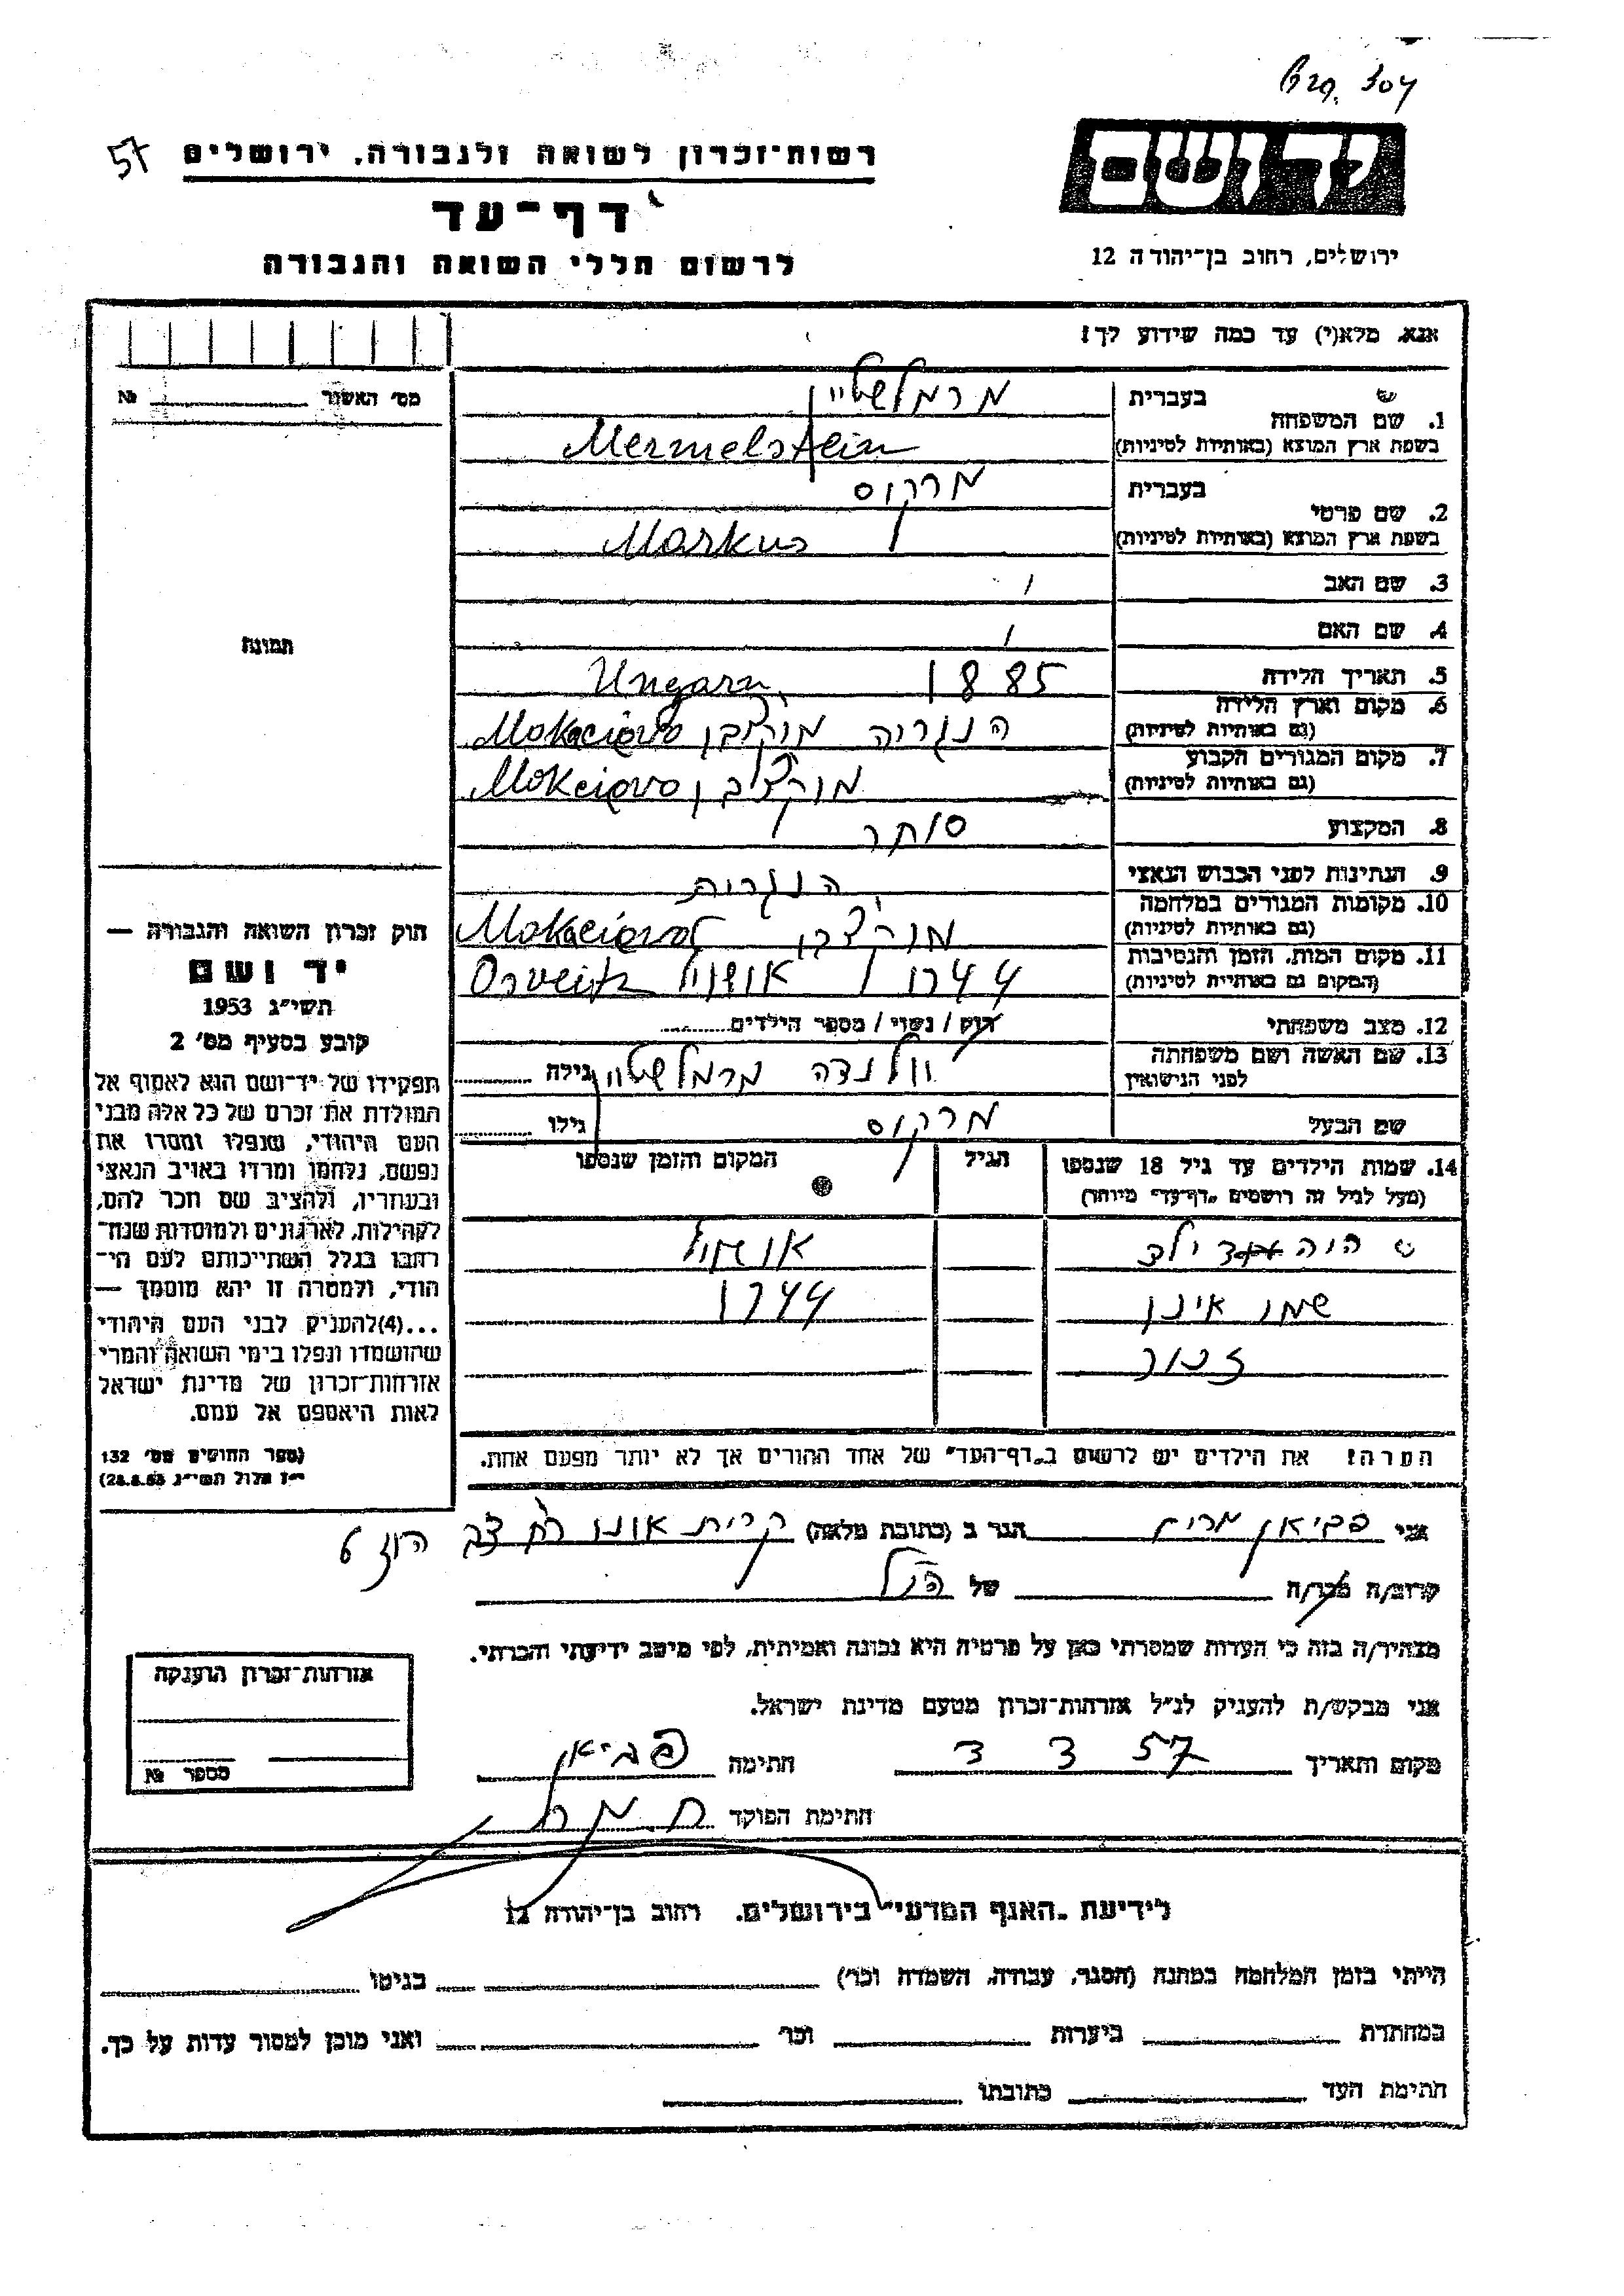 57
רשות־זכרון לשואה ולגבורה, ירושלים
דף־עד
לרשום חללי השואה והגבורה
יד ושם
ירושלים, רחוב בן־יהודה 12
אנא, מלא(י) עד כמה שידוע לך!
מס׳ האשור №
1. שם המשפחה
בעברית מרמלשטיין
בשפת ארץ המוצא (באותיות לטיניות) Mermelstein
2. שם פרטי
בעברית מרקוס
בשפת ארץ המוצא (באותיות לטיניות) Markus
3. שם האב
4. שם האם
תמונה
5. תאריך הלידה 1885 Ungarn
6. מקום וארץ הלידה
(גם באותיות לטיניות) הנגריה
7. מקום המגורים הקבוע
(גם באותיות לטיניות)
8. המקצוע סוחר
9. הנתינות לפני הכבוש הנאצי הנגרית
10. מקומות המגורים במלחמה
(גם באותיות לטיניות)
11. מקום המות, הזמן והנסיבות
(המקום גם באותיות לטיניות) 1944
12. מצב משפחתי רווק / נשוי / מספר הילדים
13. שם האשה ושם משפחתה
לפני הנישואין מרמלשטיין גילה
שם הבעל מרקוס גילו
14. שמות הילדים עד גיל 18 שנספו
(מעל לגיל זה רושמים „דף־עד״ מיוחד)
הגיל
המקום והזמן שנספו
1944
הערה! את הילדים יש לרשום ב„דף־העד״ של אחד ההורים אך לא יותר מפעם אחת.
חוק זכרון השואה והגבורה —
יד ושם
תשי״ג 1953
קובע בסעיף מס׳ 2
תפקידו של יד־ושם הוא לאסוף אל
המולדת את זכרם של כל אלה מבני
העם היהודי, שנפלו ומסרו את
נפשם, נלחמו ומרדו באויב הנאצי
ובעוזריו, ולהציב שם וזכר להם,
לקהילות, לארגונים ולמוסדות שנח־
רבו בגלל השתייכותם לעם הי־
הודי, ולמטרה זו יהא מוסמך —
...(4)להעניק לבני העם היהודי
שהושמדו ונפלו בימי השואה והמרי
אזרחות־זכרון של מדינת ישראל
לאות היאספם אל עמם.
(ספר החוקים מס׳ 132
י״ז אלול תשי״ג 28.8.53)
אני פביאן מרים הגר ב (כתובת מלאה) קרית אונו
קרוב/ה מכר/ה של
מצהיר/ה בזה כי העדות שמסרתי כאן על פרטיה היא נכונה ואמיתית, לפי מיטב ידיעתי והכרתי.
אני מבקש/ת להעניק לנ״ל אזרחות־זכרון מטעם מדינת ישראל.
מקום ותאריך 3 3 57 חתימה פביאן
חתימת הפוקד
אזרחות־זכרון הוענקה
מספר №
לידיעת „האגף המדעי״ בירושלים, רחוב בן־יהודה 12
הייתי בזמן המלחמה במחנה (הסגר, עבודה, השמדה וכו׳) בגיטו
במחתרת ביערות וכו׳ ואני מוכן למסור עדות על כך.
חתימת העד כתובתו